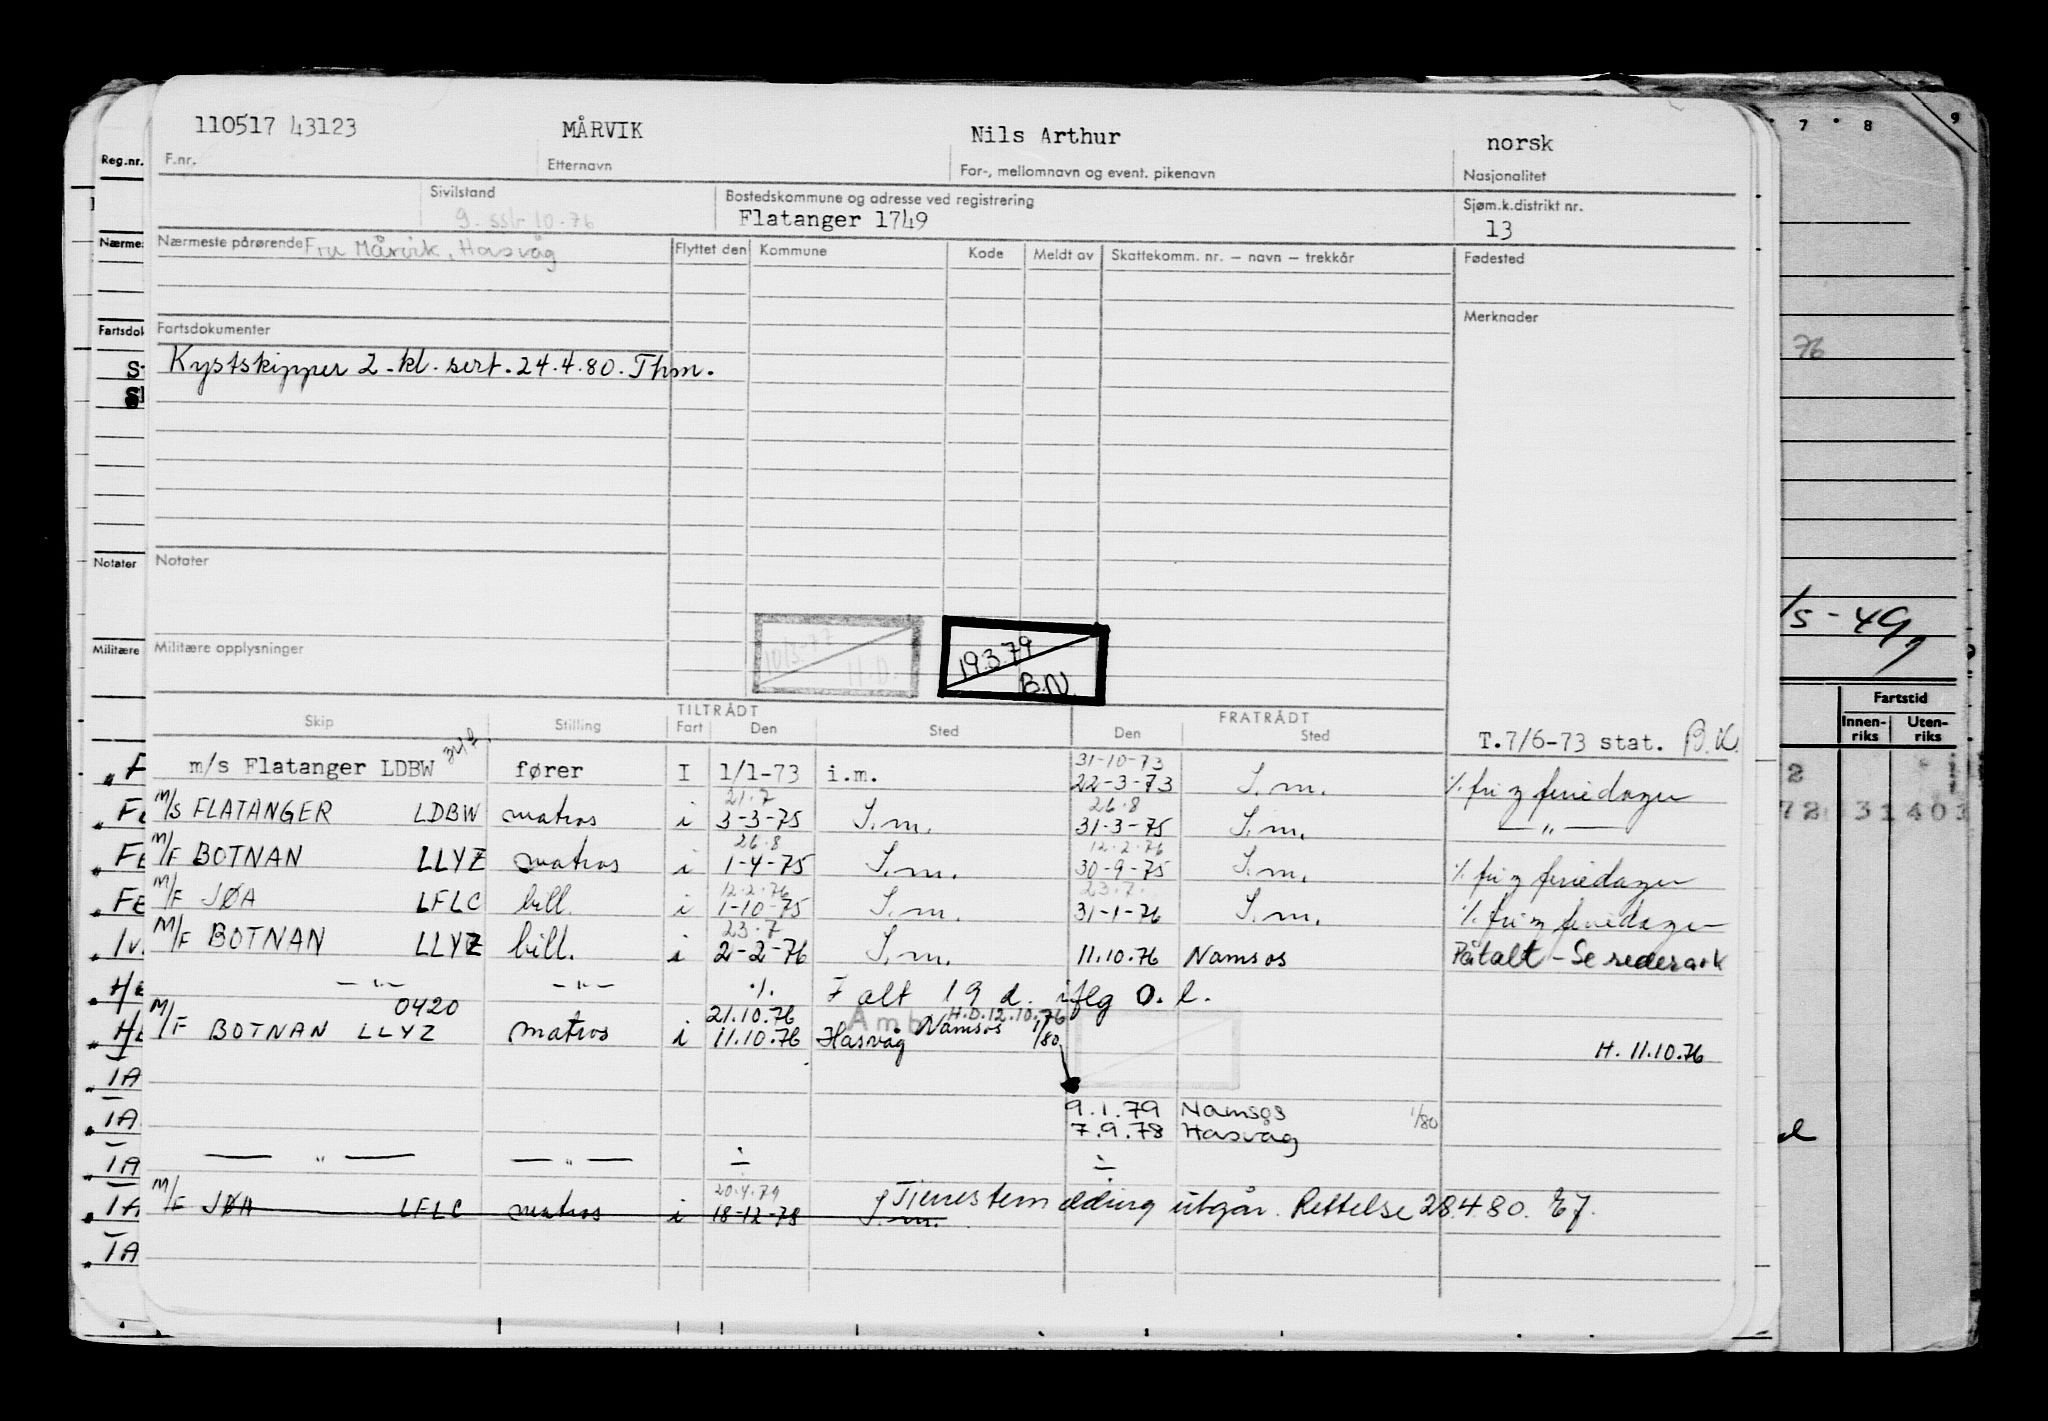 110517 43123 MÅRVIK Nils Arthur norsk
Reg.nr. F.nr. Etternavn For-, mellomnavn og event. pikenavn Nasjonalitet
Sivilstand Bostedskommune og adresse ved registrering Sjøm.k.distrikt nr.
g. sslr 10-76 Flatanger 1749 13
Nærmeste pårørende Fru Mårvik, Hasvåg Flyttet den Kommune Kode Meldt av Skattekomm. nr. – navn – trekkår Fødested
Fartsdokumenter Merknader
Kystskipper 2-kl. sert. 24.4.80. Thm.
76
Notater
/s-49
Militære opplysninger
10/3-77 H.D.
19.3.79 B.N.
Fartstid
Innenriks Utenriks
TILTRÅDT FRATRÅDT
Skip Stilling Fart Den Sted Den Sted
T.7/6-73 stat. B.K.
31-10-73
m/s Flatanger LDBW fører I 1/1-73 i.m. 22-3-73 I.m. % fri g feriedager
21.7 26.8
M/S FLATANGER LDBW matros i 3-3-75 I.m. 31-3-75 I.m. — " —
26.8 12.2.76
M/F BOTNAN LLYZ matros i 1-4-75 I.m. 30-9-75 I.m. % fri g feriedager
12.2.76 23.7.
M/F JØA LFLC bill. i 1-10-75 I.m. 31-1-76 I.m. % fri g feriedager
23.7
M/F BOTNAN LLYZ bill. i 2-2-76 I.m. 11.10.76 Namsos Påtalt - Se rederark
— " — — " — ./. I alt 19 d. iflg O. l.
0420 21.10.76 H.D.12.10.76
M/F BOTNAN LLYZ matros i 11.10.76 Hasvåg Namsos 1/80 H. 11.10.76
9.1.79 Namsos 1/80
7.9.78 Hasvåg
— " — — " — ÷ ÷
20.4.79
M/F JØA LFLC matros i 18-12-78 I.m. Tjenestemelding utgår. Rettelse 28.4.80. EJ.